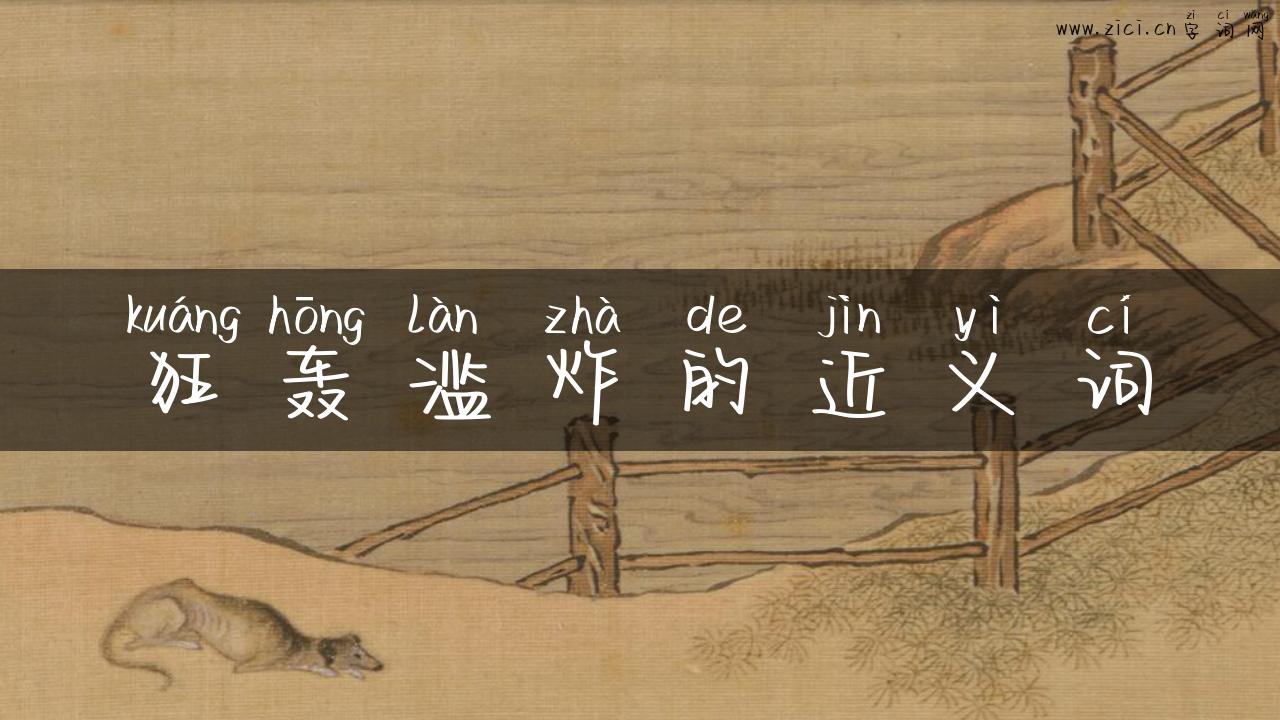 zì cí wǎng
www.zici.cn 字词网
kuáng hōng làn zhà de jìn yì cí
狂轰滥炸的近义词